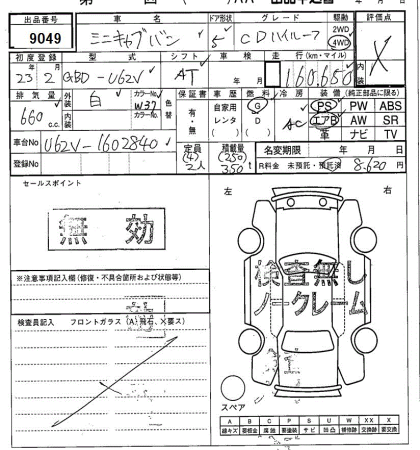 出品番号 車名 ドア形状 グレード 駆動 評価点
9049 ミニキャブバン 5 CDハイルーフ 2WD 4WD X
初度登録 型式 シフト 車検 走行(km・マイル) 内装
23年2月 GBD-U62V AT 160,680
排気量 外装 白 カラーNo. W37 色替 保証書 車歴 燃料 冷房 装備(純正部品に限る)
660 c.c. 内装 カラーNo. 有・無 自家用 レンタ ( ) G D ( ) AC PS PW ABS
エアB AW SR
革 ナビ TV
車台No U62V-1602840 定員 積載量 名変期限 年 月 日
登録No (4) 2人 (250) 350 R料金 未預託・預託済 8,620円
セールスポイント 左 右
無効
検査無し
ノークレーム
※注意事項記入欄(修復・不具合箇所および状態等)
検査員記入 フロントガラス(A)飛石、X要ス)
スペア
A B C P S U W XX X
線キズ 要補修 腐蝕 要塗装 サビ 凹凸 補修跡 交換跡 要交換